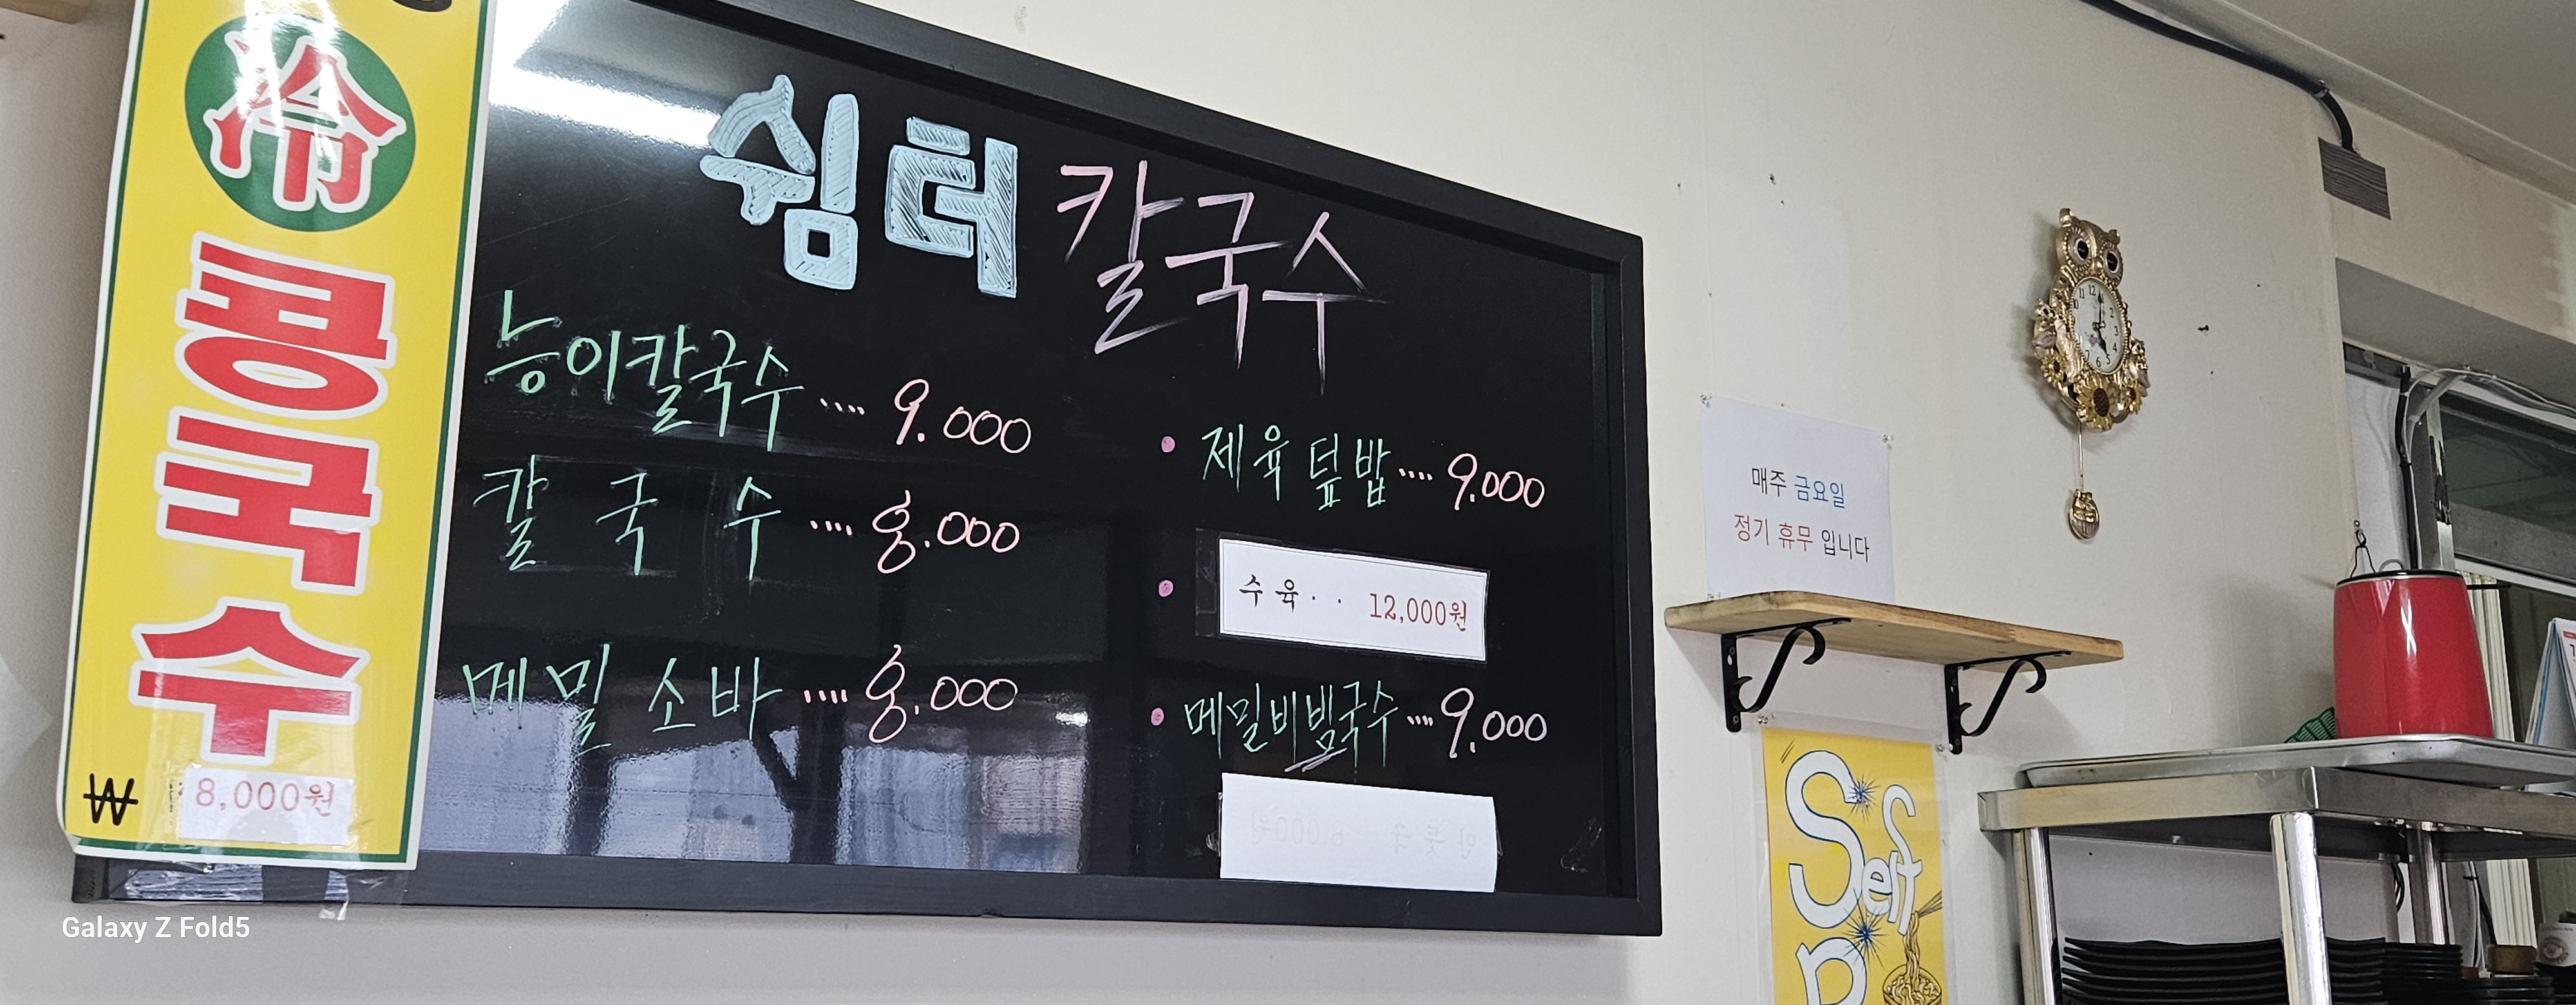 冷
콩국수
₩ 8,000원
쉼터 칼국수
능이칼국수 .... 9.000
칼국수 .... 8.000
메밀 소바 .... 8.000
• 제육 덮밥 .... 9.000
• 수육 . . 12,000원
• 메밀비빔국수 .... 9.000
매주 금요일
정기 휴무 입니다
Self
Galaxy Z Fold5